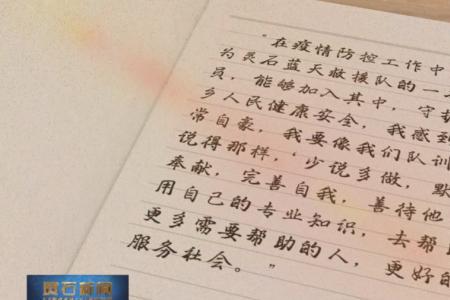 “在疫情防控工作中
为灵石蓝天救援队的一
员，能够加入其中，守护
乡人民健康安全，我感到
常自豪，我要像我们队训
说得那样，‘少说多做，默
奉献，完善自我，善待他
用自己的专业知识，去帮
更多需要帮助的人，更好的
服务社会。”
灵石新闻